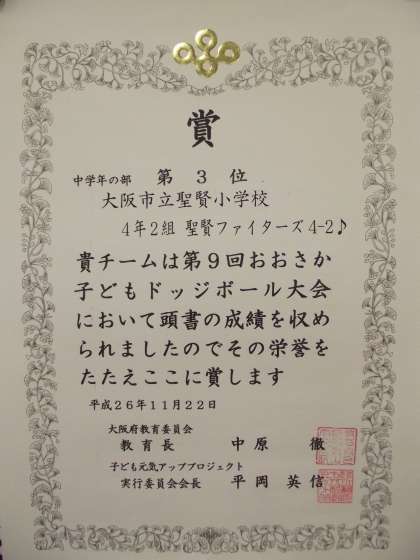 賞
中学年の部 第3位
大阪市立聖賢小学校
4年2組 聖賢ファイターズ4-2♪
貴チームは第9回おおさか
子どもドッジボール大会
において頭書の成績を収め
られましたのでその栄誉を
たたえここに賞します
平成26年11月22日
大阪府教育委員会
教育長 中原 徹
子ども元気アッププロジェクト
実行委員会会長 平岡英信